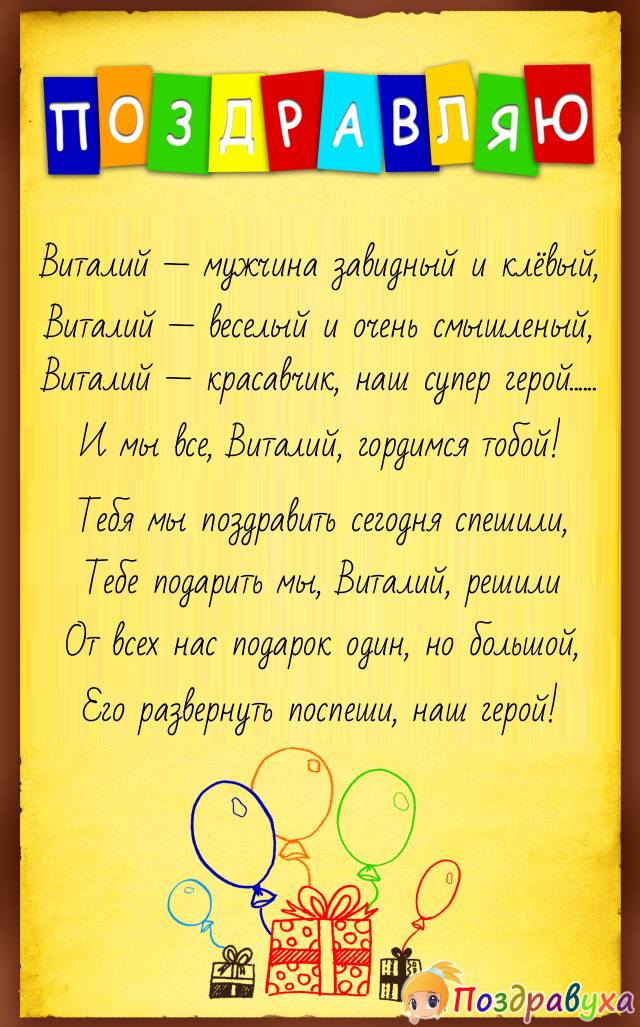 ПОЗДРАВЛЯЮ
Виталий — мужчина завидный и клёвый,
Виталий — веселый и очень смышленый,
Виталий — красавчик, наш супер герой......
И мы все, Виталий, гордимся тобой!
Тебя мы поздравить сегодня спешили,
Тебе подарить мы, Виталий, решили
От всех нас подарок один, но большой,
Его развернуть поспеши, наш герой!
Поздравуха